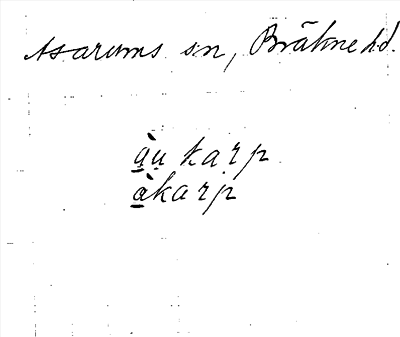 Asarums sn, Bräkne hd.
à̱ụ karp
à̱karp